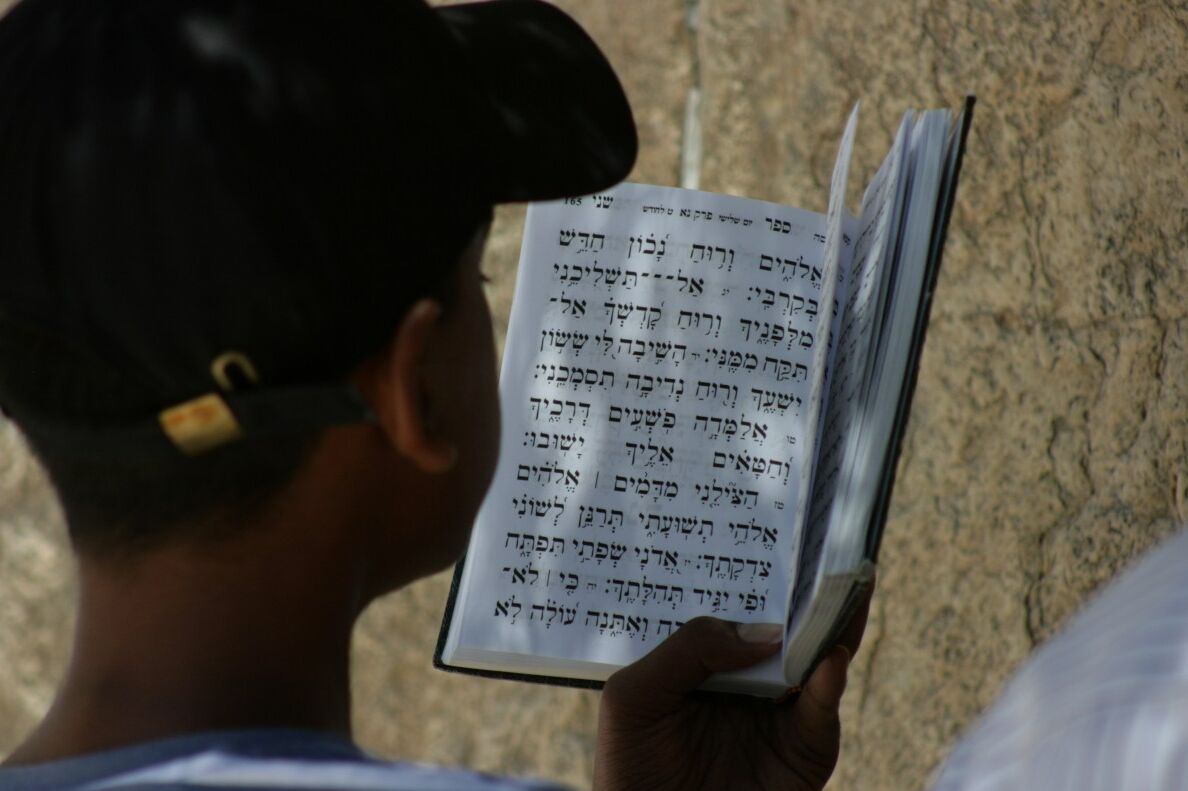 ספר יום שלישי פרק נא ט לחודש שני 165
אֱלֹהִ֑ים וְר֥וּחַ נָ֝כ֗וֹן חַדֵּ֥שׁ
בְּקִרְבִּֽי׃ יג אַל־־־תַּשְׁלִיכֵ֥נִי
מִלְּפָנֶ֑יךָ וְר֥וּחַ קָ֝דְשְׁךָ֗ אַל־
תִּקַּ֥ח מִמֶּֽנִּי׃ יד הָשִׁ֣יבָה לִּ֭י שְׂשׂ֣וֹן
יִשְׁעֶ֑ךָ וְר֖וּחַ נְדִיבָ֣ה תִסְמְכֵֽנִי׃
טו אֲלַמְּדָ֣ה פֹשְׁעִ֣ים דְּרָכֶ֑יךָ
וְ֝חַטָּאִ֗ים אֵלֶ֥יךָ יָשֽׁוּבוּ׃
טז הַצִּ֘ילֵ֤נִי מִדָּמִ֨ים ׀ אֱלֹהִ֗ים
אֱלֹהֵ֥י תְשׁוּעָתִ֑י תְּרַנֵּ֥ן לְ֝שׁוֹנִ֗י
צִדְקָתֶֽךָ׃ יז אֲ֭דֹנָי שְׂפָתַ֣י תִּפְתָּ֑ח
וּ֝פִ֗י יַגִּ֥יד תְּהִלָּתֶֽךָ׃ יח כִּ֤י ׀ לֹא־
וְאֶתֵּ֑נָה עוֹלָ֝ה לֹ֣א